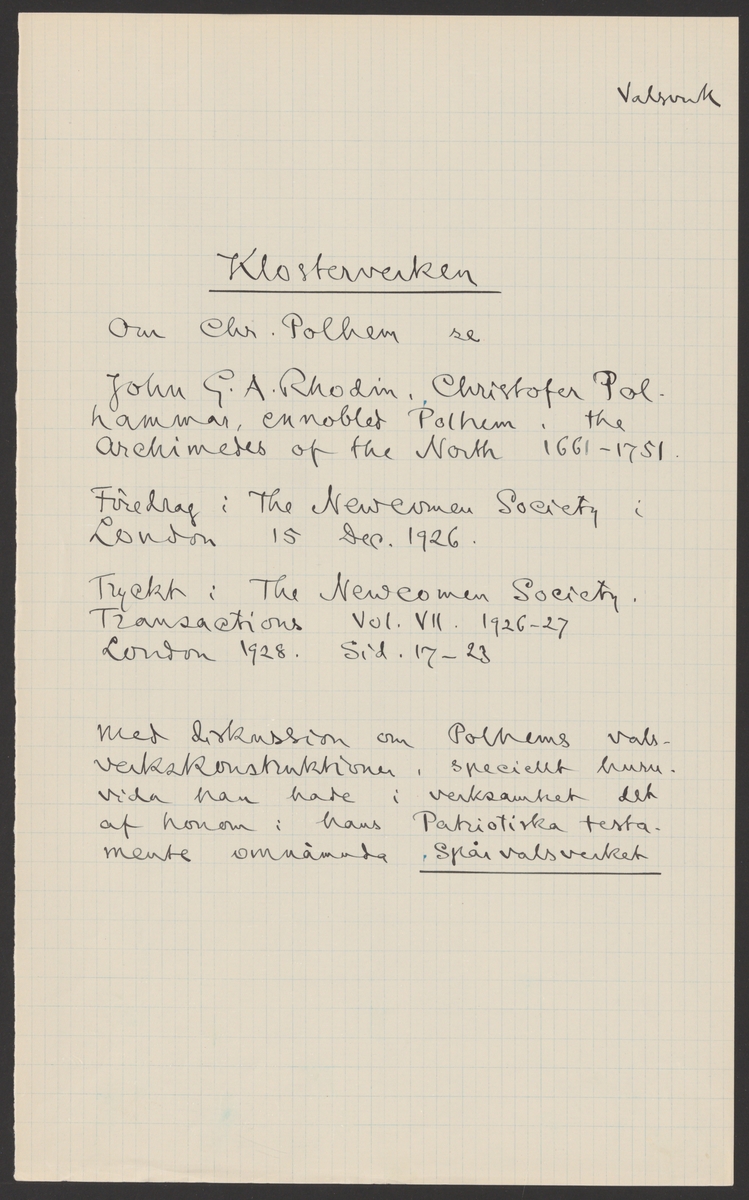 Valsverk
Klosterverken
Om Chr. Polhem se
John G. A. Rhodin, Christofer Pol-
hammar, ennobled Polhem, the
Archimedes of the North 1661-1751.
Föredrag i The Newcomen Society i
London 15 Dec. 1926.
Tryckt i The Newcomen Society.
Transactions Vol. VII. 1926-27
London 1928. Sid. 17-23
Med diskussion om Polhems vals-
verkskonstruktioner, speciellt huru-
vida han hade i verksamhet det
af honom i hans Patriotiska testa-
mente omnämnda Spårvalsverket